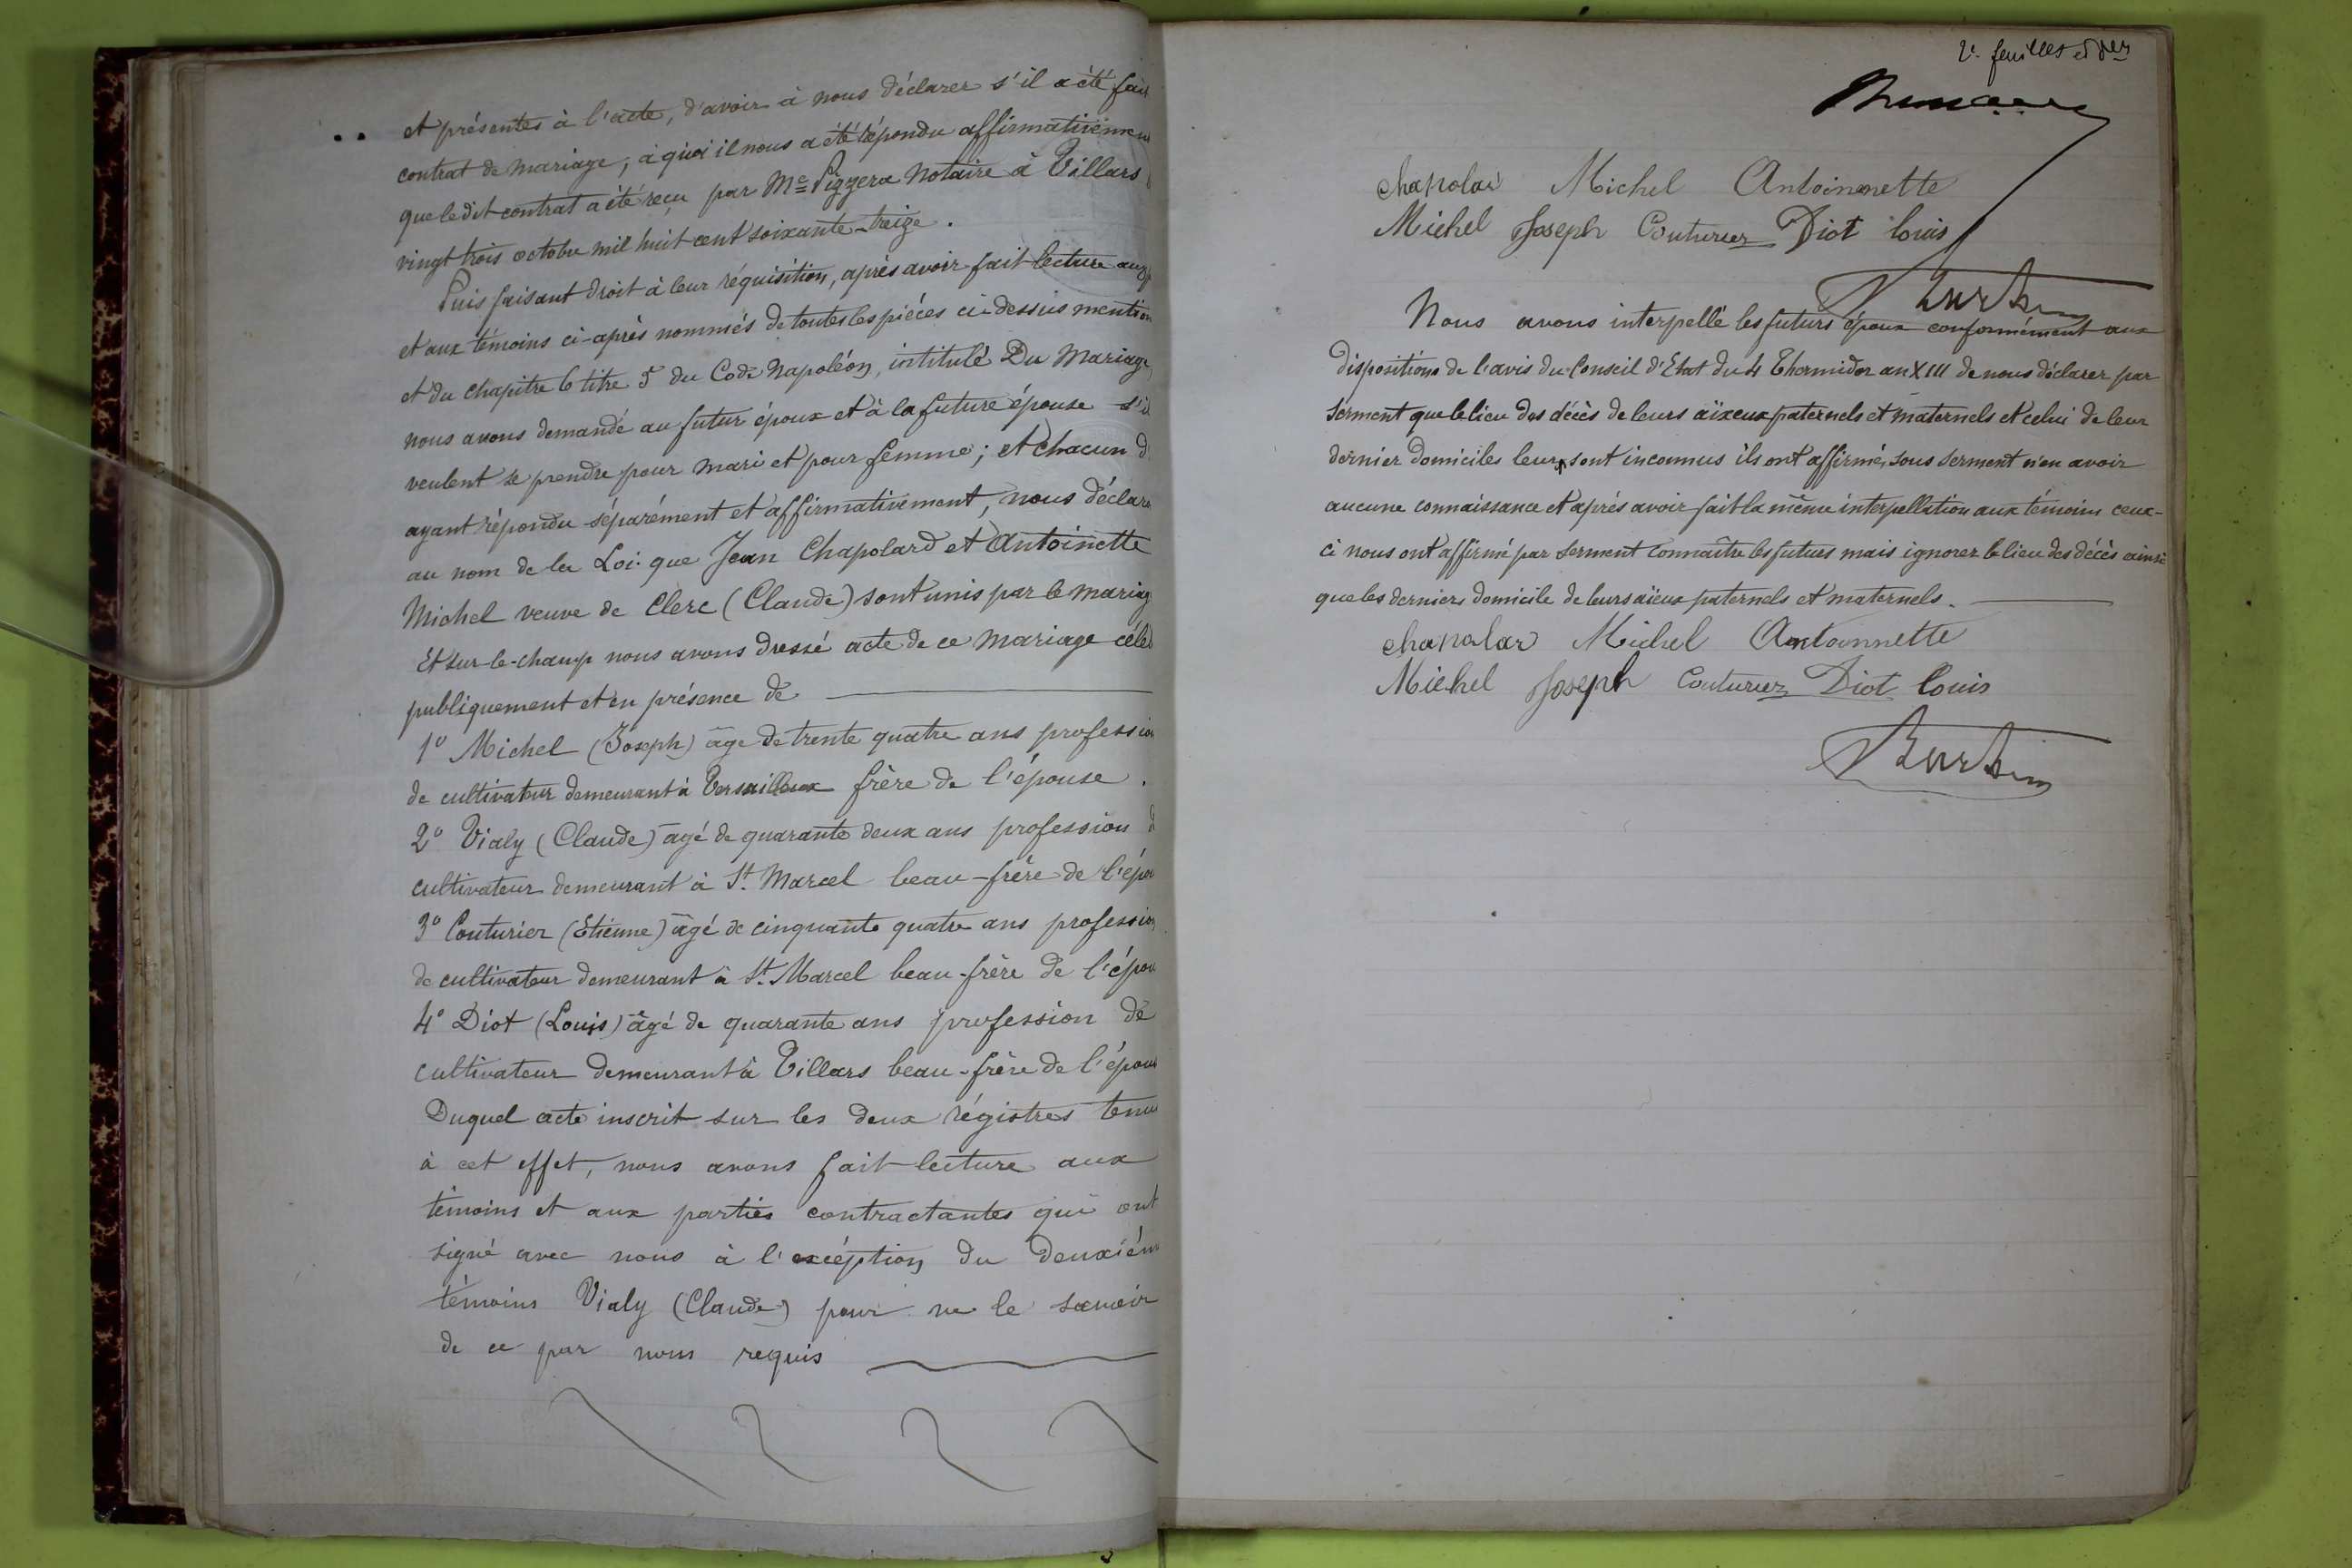 et présentes à l'acte, d'avoir à nous déclarer s'il a été fait
contrat de mariage, à quoi il nous a été répondu affirmativemen
que ledit contrat a été reçu par Me Pizzera Notaire à Villars
vingt trois octobre mil huit cent soixante-treize.
Puis faisant droit à leur réquisition, après avoir fait lecture aux
et aux témoins ci-après nommés de toutes les pièces ci-dessus mention
et du chapitre 6 titre 5 du Code Napoléon, intitulé Du Mariage,
nous avons demandé au futur époux et à la future épouse s'il
veulent se prendre pour mari et pour femme; et chacun d
ayant répondu séparément et affirmativement, nous déclaro
au nom de la Loi que Jean Chapolard et Antoinette
Michel veuve de Clerc (Claude) sont unis par le mariag
Et sur-le-champ nous avons dressé acte de ce mariage céléb
publiquement et en présence de
1º Michel (Joseph) âge de trente quatre ans profession
de cultivateur demeurant à Versailleux frère de l'épouse.
2º Vialy (Claude) âgé de quarante deux ans profession d
cultivateur demeurant à St. Marcel beau-frère de l'épou
3º Couturier (Etienne) âgé de cinquante quatre ans profession
de cultivateur demeurant à St. Marcel beau-frère de l'épou
4º Diot (Louis) âgé de quarante ans profession de
cultivateur demeurant à Villars beau-frère de l'épous
Duquel acte inscrit sur les deux régistres tenus
à cet effet, nous avons fait lecture aux
témoins et aux parties contractantes qui ont
signé avec nous à l'excéption du deuxièm
témoins Vialy (Claude) pour ne le savoir
de ce par nous requis
2e feuillet et der
chapolar Michel Antoinonette
Michel Joseph Couturier Diot louis
Nous avons interpellé les futurs époux conformément aux
dispositions de l'avis du Conseil d'Etat du 4 Thermidor an XIII de nous déclarer par
serment que le lieu des décès de leurs aïxeux paternels et maternels et celui de leur
dernier domiciles leurs sont inconnus ils ont affirmé, sous serment n'en avoir
aucune connaissance et après avoir fait la même interpellation aux témoins ceux-
ci nous ont affirmé par serment connaître les futurs mais ignorer le lieu des décès ainsi
que les derniers domicile de leurs aïeux paternels et maternels.
chapolar Michel Antoinnette
Michel Joseph Couturier Diot louis